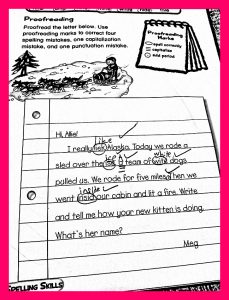 Proofreading
Proofread the letter below. Use
proofreading marks to correct four
spelling mistakes, one capitalization
mistake, and one punctuation mistake.
Proofreading
Marks
spell correctly
capitalize
add period
Hi, Allie!
like
I really Alaska. Today we rode a
ice white
sled over the A team of dogs
pulled us. We rode for five miles then we
inside
went our cabin and lit a fire. Write
and tell me how your new kitten is doing.
What's her name?
Meg
SPELLING SKILLS